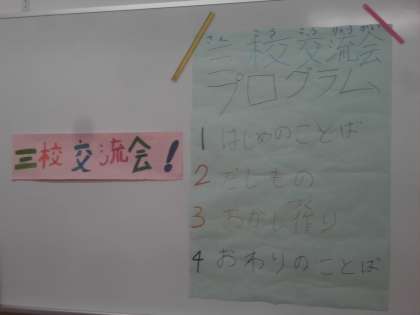 三校交流会!
三校交流会
プログラム
1 はじめのことば
2 だしもの
3 おかし
4 おわりのことば